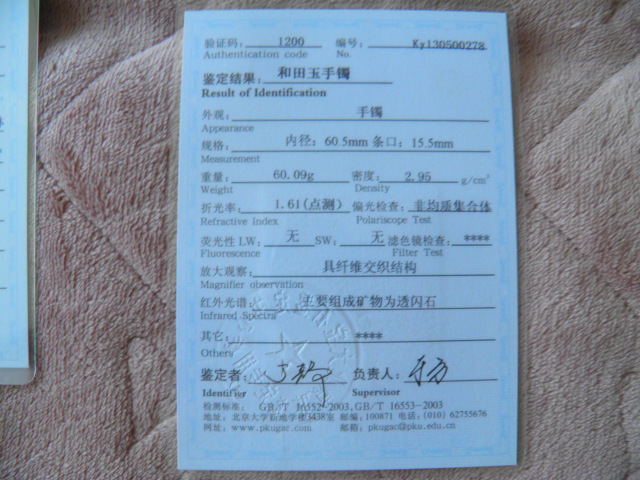 验证码: 1200 编号: Ky130500278
Authentication code No.
鉴定结果: 和田玉手镯
Result of Identification
外观: 手镯
Appearance
规格: 内径: 60.5mm 条口: 15.5mm
Measurement
重量: 60.09g 密度: 2.95 g/cm³
Weight Density
折光率: 1.61(点测) 偏光检查: 非均质集合体
Refractive Index Polariscope Test
荧光性 LW: 无 SW: 无 滤色镜检查: ****
Fluorescence Filter Test
放大观察: 具纤维交织结构
Magnifier observation
红外光谱: 主要组成矿物为透闪石
Infrared Spectra
其它: ****
Others
鉴定者: 负责人:
Identifier Supervisor
检测标准: GB/T 16552-2003, GB/T 16553-2003
地址: 北京大学新地学楼3438室 邮编: 100871 电话: (010) 62755676
网址: www.pkugac.com 邮箱: pkugac@pku.edu.cn